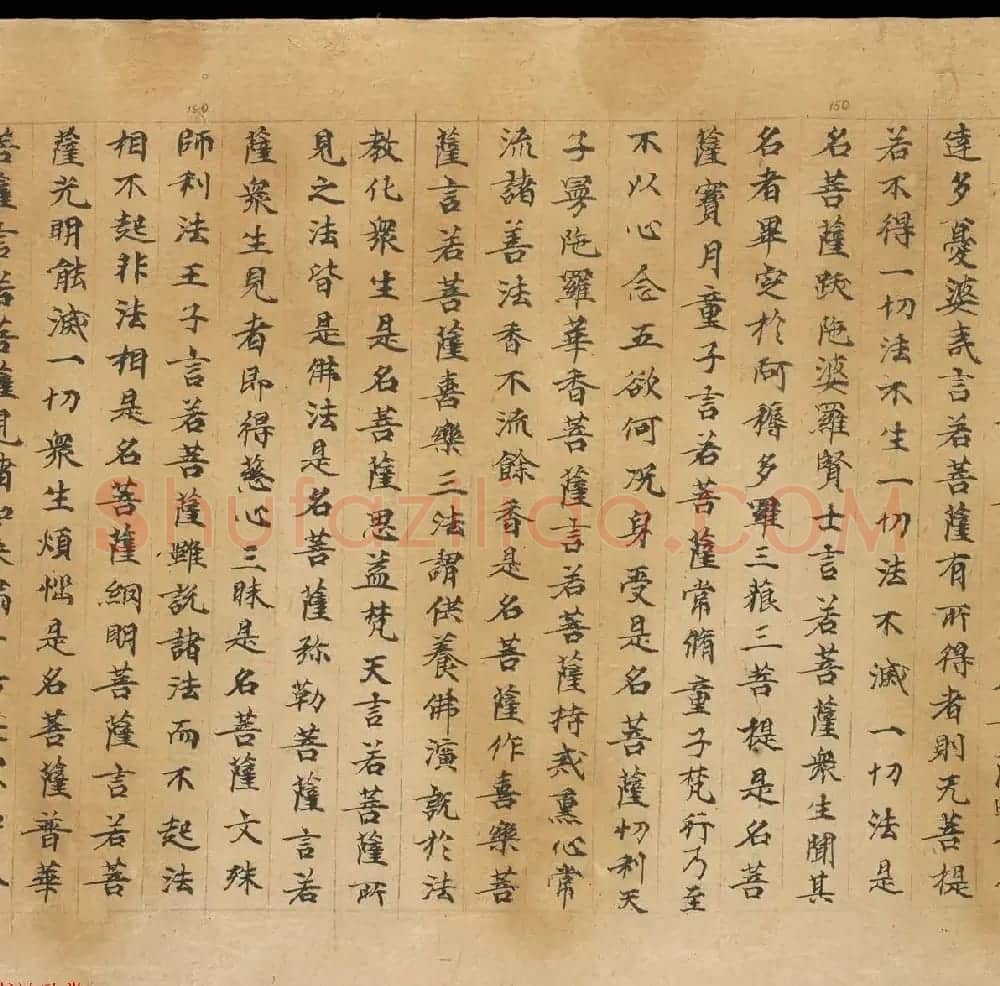 達多憂婆夷言若菩薩有所得者則无菩提
若不得一切法不生一切法不滅一切法是
名菩薩跋陁婆羅賢士言若菩薩衆生聞其
名者畢定於阿耨多羅三藐三菩提是名菩
薩寶月童子言若菩薩常脩童子梵行乃至
不以心念五欲何況身受是名菩薩忉利天
子曼陁羅華香菩薩言若菩薩持戒熏心常
流諸善法香不流餘香是名菩薩作喜樂菩
薩言若菩薩喜樂三法謂供養佛演說於法
教化衆生是名菩薩思益梵天言若菩薩所
見之法皆是佛法是名菩薩弥勒菩薩言若
薩衆生見者即得慈心三昧是名菩薩文殊
師利法王子言若菩薩雖說諸法而不起法
相不起非法相是名菩薩網明菩薩言若菩
薩光明能滅一切衆生煩惱是名菩薩普華
菩薩言若菩薩見諸
150
150
Shufaziliao.COM